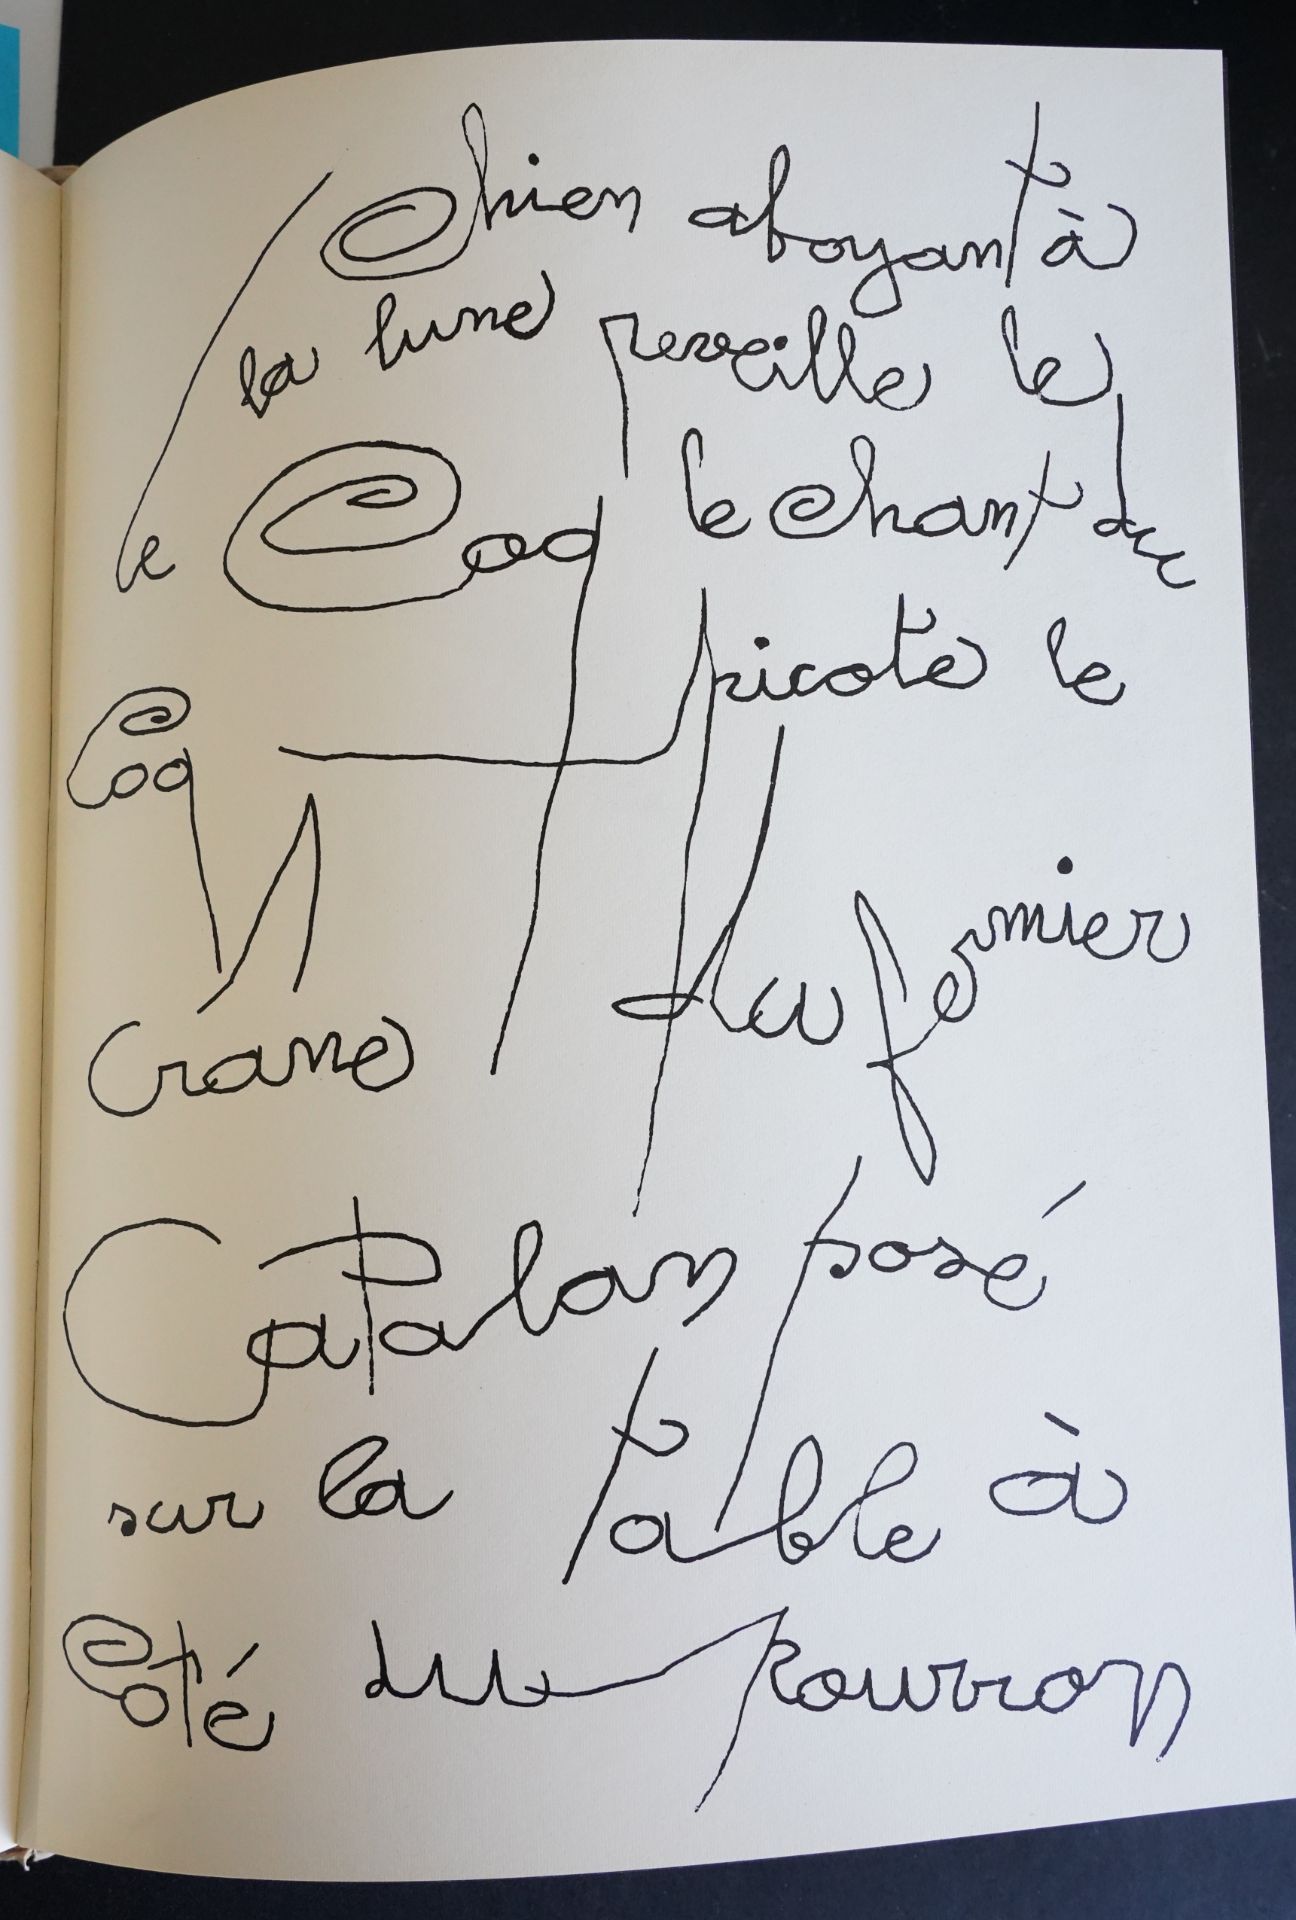 Chien aboyant à
la lune reveille le
le Coq le chant du
picote le
Coq
crane du fermier
Catalan posé
sur la table à
Coté du pourron